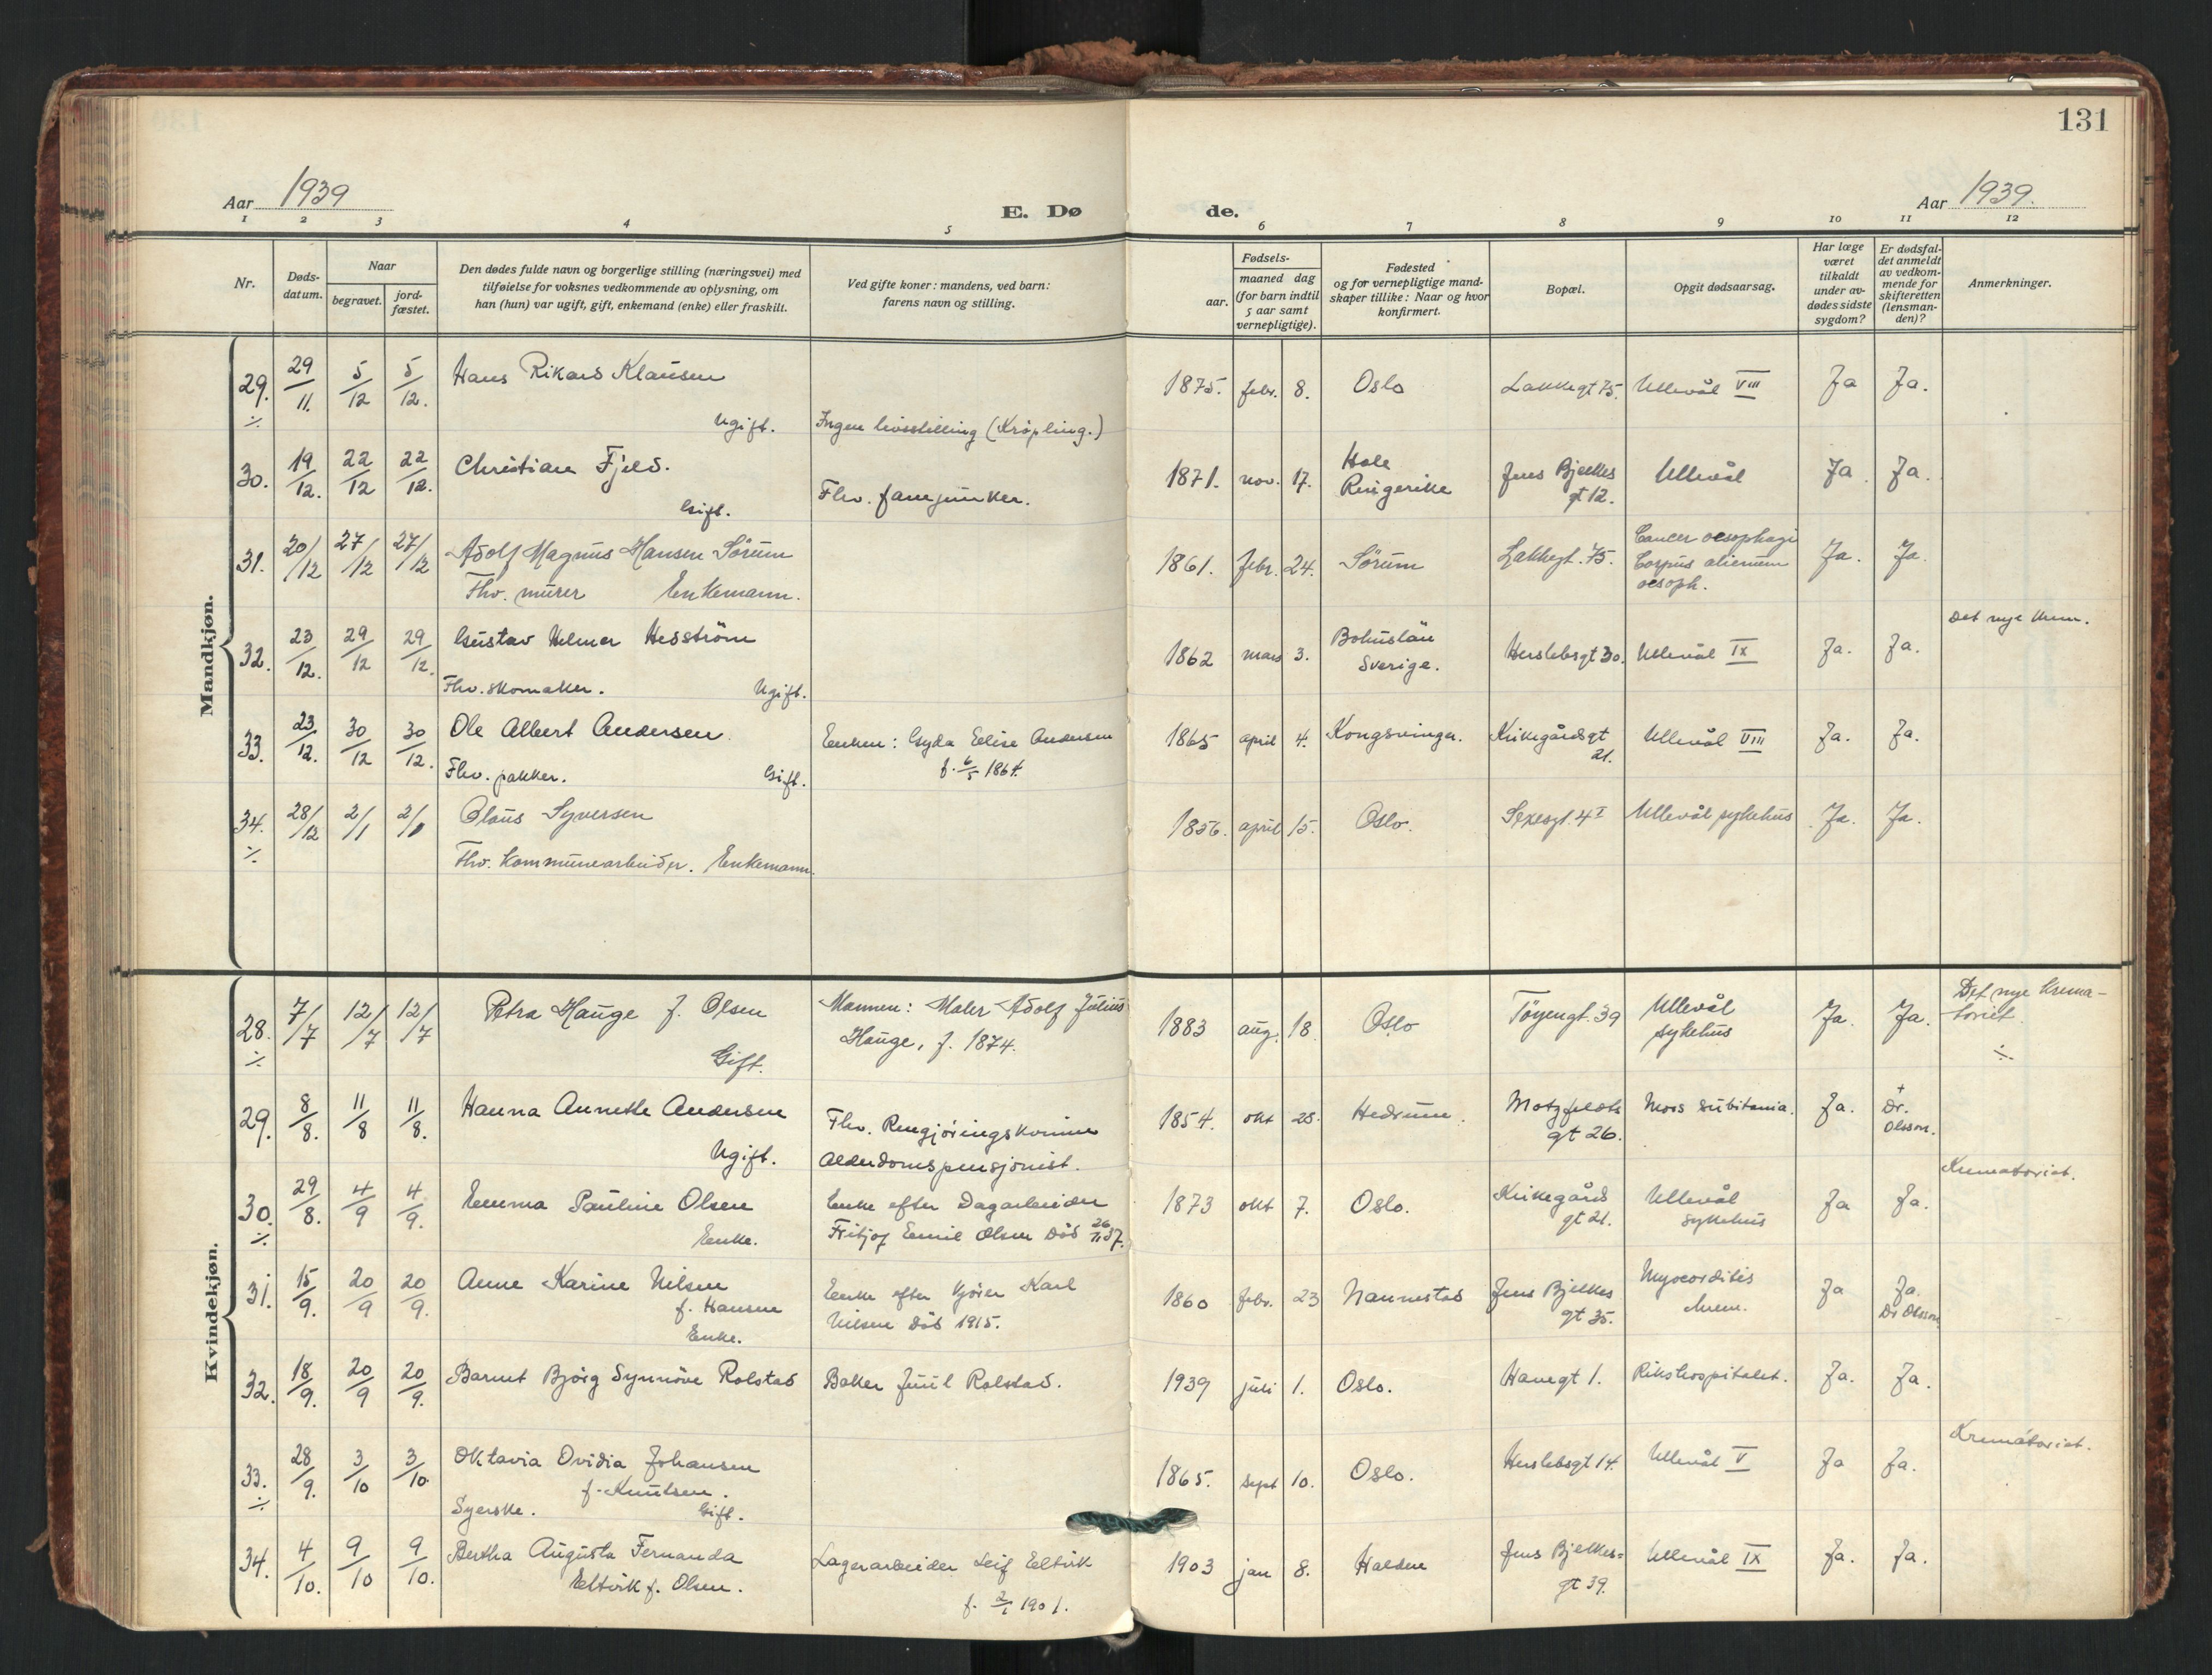 131
Aar 1939
E. Døde.
Aar 1939.
1 2 3 4 5 6 7 8 9 10 11 12
Nr.
Døds-
datum.
Naar
begravet.
jord-
fæstet.
Den dødes fulde navn og borgerlige stilling (næringsvei) med
tilføielse for voksnes vedkommende av oplysning, om
han (hun) var ugift, gift, enkemand (enke) eller fraskilt.
Ved gifte koner: mandens, ved barn:
farens navn og stilling.
Fødsels-
aar.
maaned dag
(for barn indtil
5 aar samt
vernepligtige).
Fødested
og for vernepligtige mand-
skaper tillike: Naar og hvor
konfirmert.
Bopæl.
Opgit dødsaarsag.
Har læge
været
tilkaldt
under av-
dødes sidste
sygdom?
Er dødsfal-
det anmeldt
av vedkom-
mende for
skifteretten
(lensman-
den)?
Anmerkninger.
Mandkjøn.
29. 29/11. 5/12 5/12. Hans Rikard Klausen 1875. febr. 8. Oslo Lakkegt 75. Ullevål VIII Ja Ja.
÷ Ugift. Ingen livsstilling (Krøpling.)
30. 19/12. 22/12 22/12. Christian Fjeld. Gift. Fhv. fanejunker. 1871. nov. 17. Hole
Ringerike Jens Bjelkes
gt 12. Ullevål Ja Ja.
31. 20/12 27/12 27/12 Adolf Magnus Hansen Sörum 1861. febr. 24. Sörum Lakkegt. 75. Cancer oesophagi
Corpus alienum
oesoph. Ja. Ja.
Fhv. murer Enkemann.
32. 23/12. 29/12 29/12. Gustav Helmer Hesström 1862 mars 3. Bohuslän
Sverige. Herslebsgt 30. Ullevål IX Ja. Ja. Det nye krem.
Fhv. skomaker. Ugift.
33. 23/12. 30/12 30/12. Ole Albert Andersen. Enken: Gyda Elise Andersen
f. 6/5 1864. 1865 april 4. Kongsvinger. Kirkegårdsgt
21. Ullevål VIII Ja. Ja.
Fhv. pakker. Gift.
34. 28/12 2/1 2/1 Olaus Syversen 1856. april 15. Oslo. Sexesgt. 4 I Ullevål sykehus Ja. Ja.
÷ Fhv. kommunearbeider. Enkemann.
Kvindekjøn.
28. 7/7 12/7 12/7 Petra Hauge f. Olsen Mannen: Maler Adolf Julius
Hauge, f. 1874. 1883 aug. 18 Oslo Töyengt. 39 Ullevål
sykehus Ja. Ja. Det nye krema-
toriet.
÷ Gift. ÷
29. 8/8. 11/8 11/8. Hanna Annette Andersen Fhv. Rengjöringskvinne
Alderdomspensjonist. 1854. okt 28. Hedrum. Motzfeldts
gt 26. Mors subitania. Ja. +
Dr.
Olsson.
Ugift.
30. 29/8. 4/9 4/9. Emma Pauline Olsen Enke efter Dagarbeider
Fritjof Emil Olsen död 26/11 37. 1873 okt 7. Oslo. Kirkegårds
gt 21. Ullevål
sykehus Ja Ja. Krematoriet.
÷ Enke.
31. 15/9. 20/9 20/9. Anne Karine Nilsen
f. Hansen
Enke. Enke efter Kjörer Karl
Nilsen död 1915. 1860 febr. 23 Nannestad Jens Bjelkes
gt 35. Myocorditis
chron. Ja Ja.
Dr Olsson.
32. 18/9. 20/9 20/9. Barnet Bjørg Synnöve Rolstad Baker Juul Rolstad. 1939 juli 1. Oslo. Hanegt 1. Rikshospitalet. Ja. Ja.
33. 28/9. 3/10 3/10 Oktavia Ovidia Johansen
f. Knutsen. 1865. sept 10. Oslo. Herslebsgt 14. Ullevål V Ja Ja. Krematoriet.
÷ Syerske. Gift.
34. 4/10. 9/10 9/10. Bertha Augusta Fernanda
Eltvik f. Olsen. Lagerarbeider Leif Eltvik
f. 2/1 1901. 1903 jan 8. Halden Jens Bjelkes-
gt 39. Ullevål IX Ja. Ja.